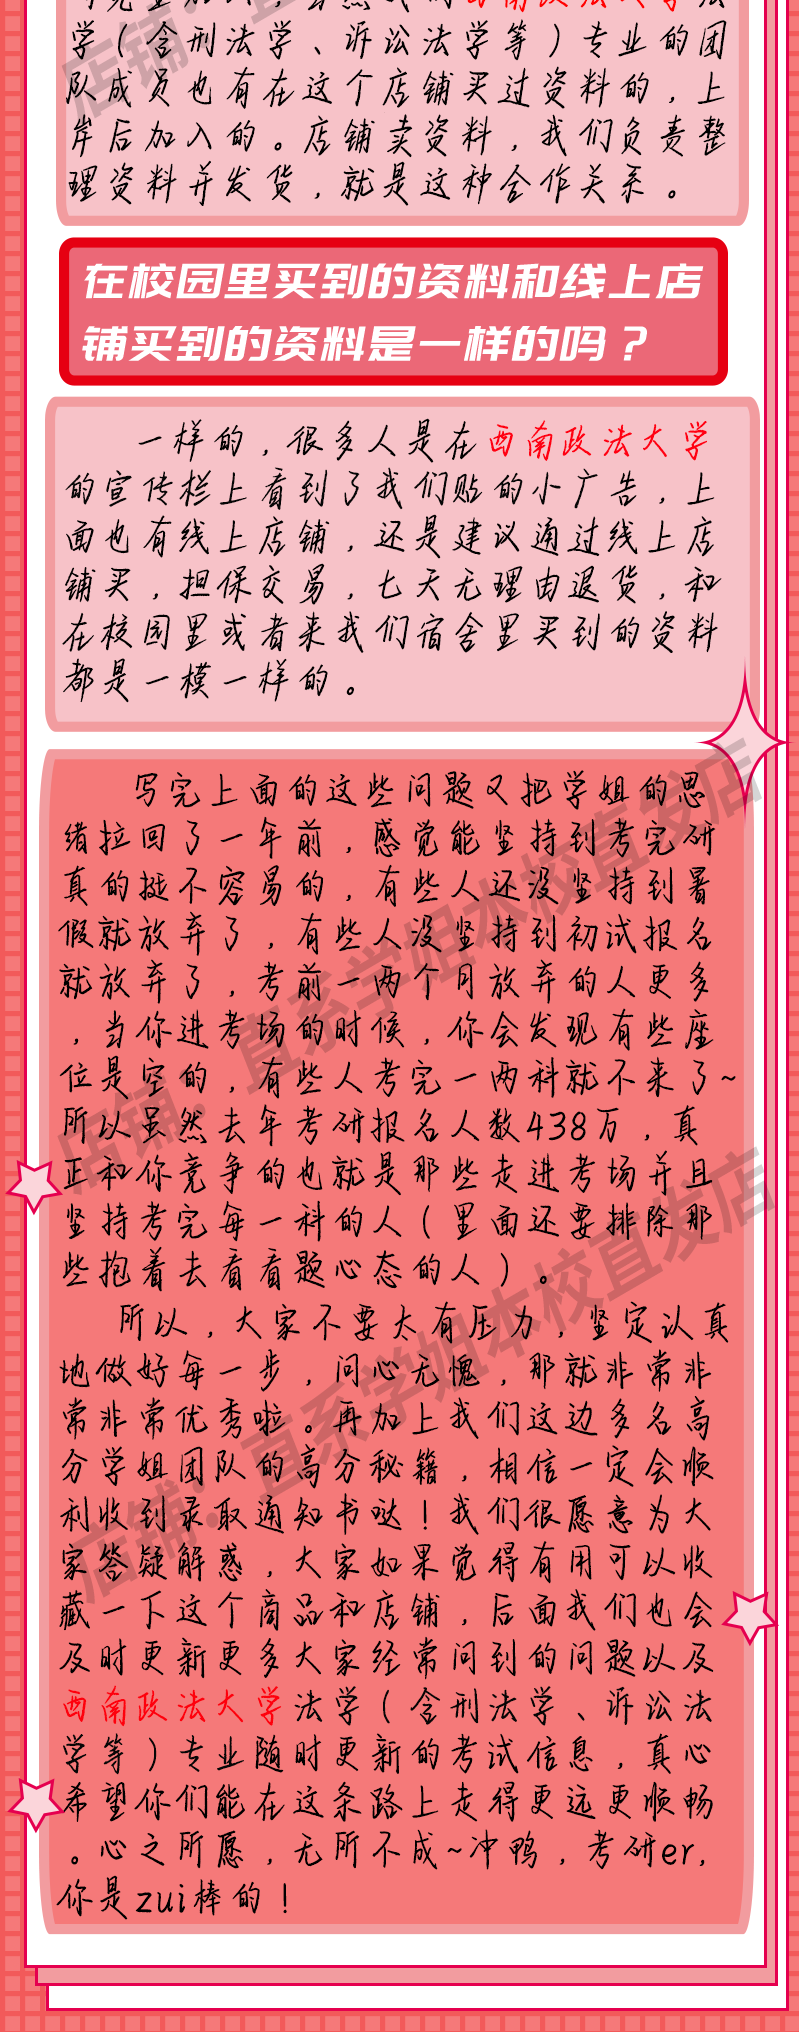 西南政法大学法
学（含刑法学、诉讼法学等）专业的团
队成员也有在这个店铺买过资料的，上
岸后加入的。店铺卖资料，我们负责整
理资料并发货，就是这种合作关系。
在校园里买到的资料和线上店
铺买到的资料是一样的吗？
一样的，很多人是在西南政法大学
的宣传栏上看到了我们贴的小广告，上
面也有线上店铺，还是建议通过线上店
铺买，担保交易，七天无理由退货，和
在校园里或者来我们宿舍里买到的资料
都是一模一样的。
写完上面的这些问题又把学姐的思
绪拉回了一年前，感觉能坚持到考完研
真的挺不容易的，有些人还没坚持到暑
假就放弃了，有些人没坚持到初试报名
就放弃了，考前一两个月放弃的人更多
，当你进考场的时候，你会发现有些座
位是空的，有些人考完一两科就不来了~
所以虽然去年考研报名人数438万，真
正和你竞争的也就是那些走进考场并且
坚持考完每一科的人（里面还要排除那
些抱着去看看题心态的人）。
所以，大家不要太有压力，坚定认真
地做好每一步，问心无愧，那就非常非
常非常优秀啦。再加上我们这边多名高
分学姐团队的高分秘籍，相信一定会顺
利收到录取通知书哒！我们很愿意为大
家答疑解惑，大家如果觉得有用可以收
藏一下这个商品和店铺，后面我们也会
及时更新更多大家经常问到的问题以及
西南政法大学法学（含刑法学、诉讼法
学等）专业随时更新的考试信息，真心
希望你们能在这条路上走得更远更顺畅
。心之所愿，无所不成~冲鸭，考研er,
你是zui棒的！
店铺：直系学姐本校直发店
店铺：直系学姐本校直发店